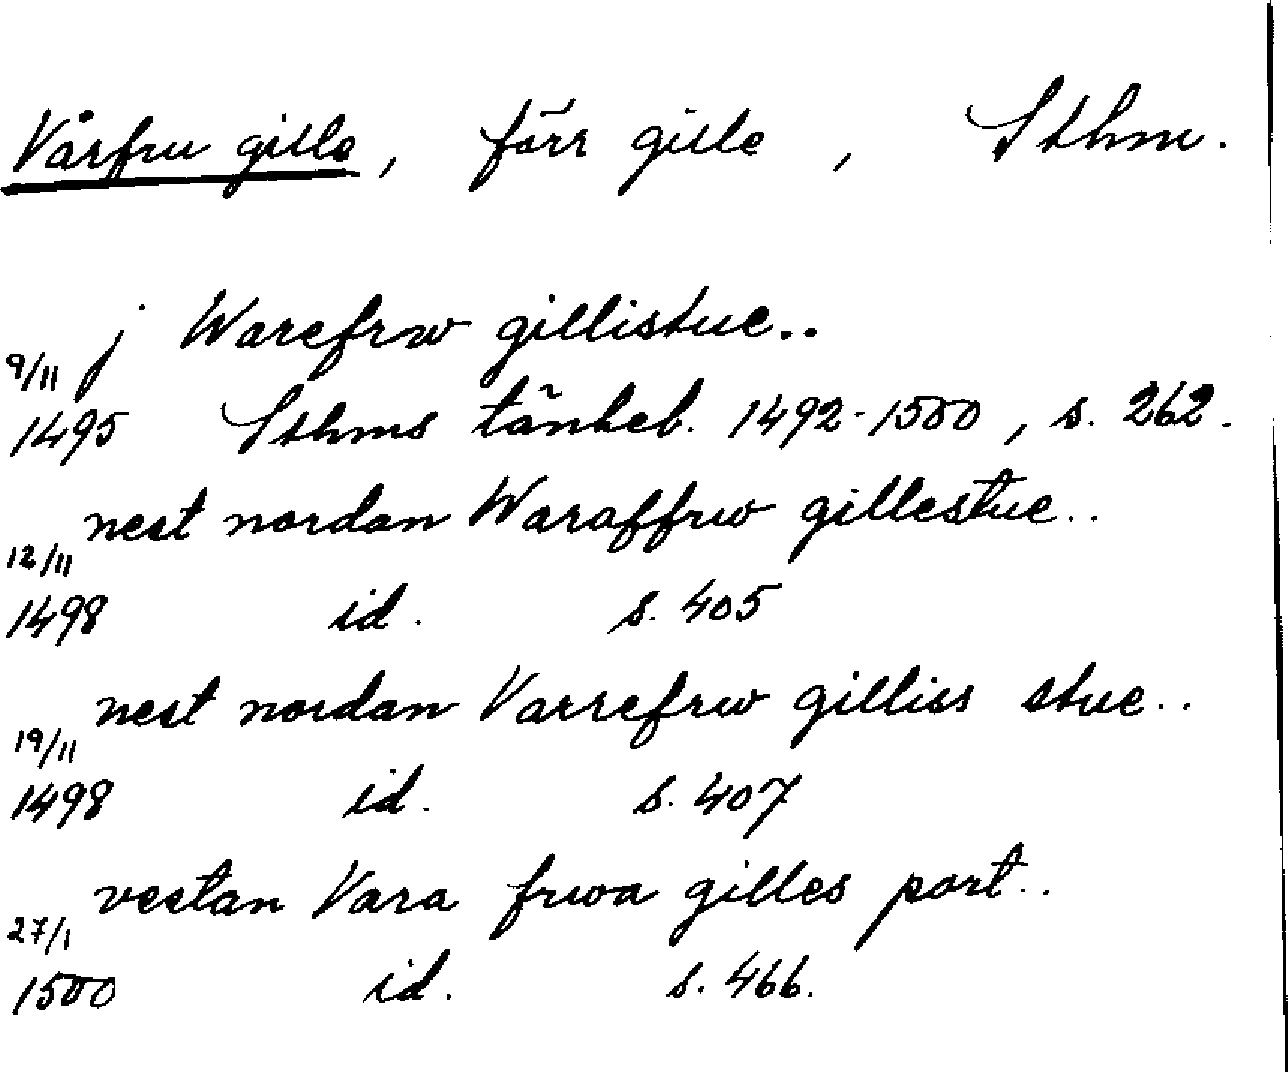 Vårfru gille, förr gille, Sthm.
j Warefrw gillistue..
9/11
1495 Sthms tänkeb. 1492-1500, s. 262.
nest nordan Waraffrw gillestue..
12/11
1498 id. s. 405
nest nordan Varrefrw gilliss stue..
19/11
1498 id. s. 407
vestan Vara frwa gilles port..
27/1
1500 id. s. 466.